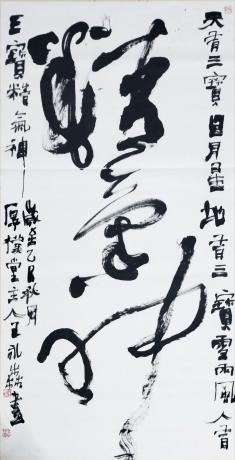 精气神
天有三寶日月星地有三寶雲雨風人有
三寶精氣神
歲在乙巳秋月
厚樸堂主人王永林書